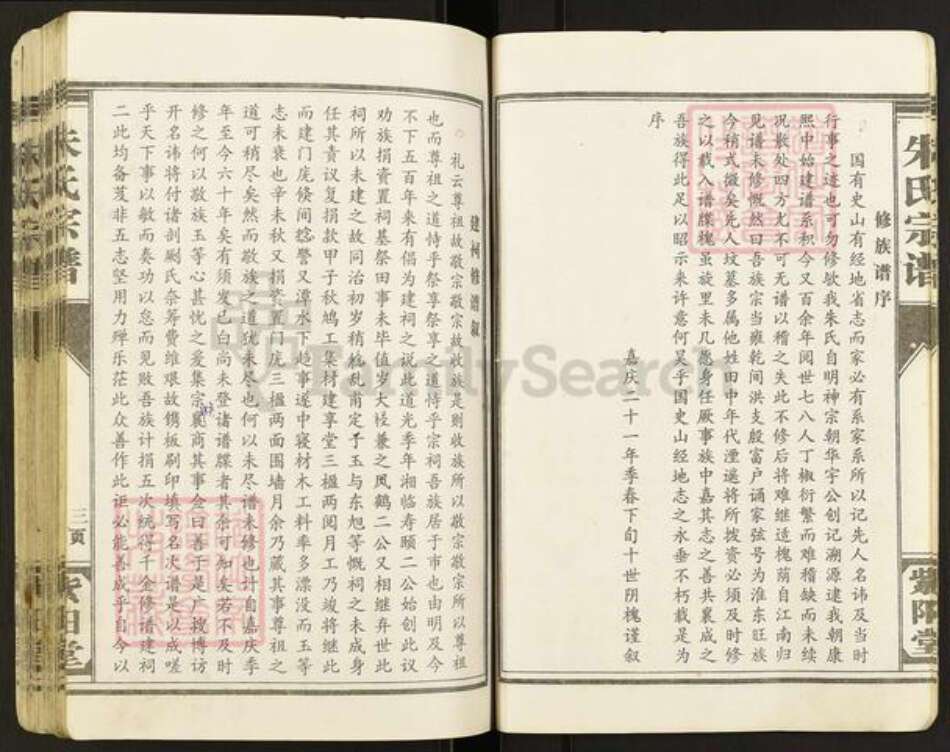 朱氏宗谱
修族谱序
国有史山有经地省志而家必有系家系所以记先人名讳及当时
行事之迹也可勿修欤我朱氏自明神宗朝华宇公创记溯源逮我朝康
熙中始建谱系积今又百余年阅世七八人丁椒衍繁而难稽缺而未续
况散处四方尤不可无谱以稽之失此不修后将难继适槐荫自江南归
见谱未修慨然曰吾族宗当雍乾间洪支殷富户诵家弦号为淮东旺族
今稍式微矣先人坟墓多属他姓田中年代湮遥将所拨资必须及时修
之以载入谱牒槐虽旋里未几愿身任厥事族中嘉其志之善共襄成之
吾族得此足以昭示来许意何昊乎国史山经地志之永垂不朽哉是为
序
嘉庆二十一年季春下旬十世阴槐谨叙
紫阳堂
建祠修谱叙
礼云尊祖故敬宗敬宗故收族是则收族所以敬宗敬宗所以尊祖
也而尊祖之道恃乎祭享祭享之道恃乎宗祠吾族居于市也由明及今
不下五百年来有倡为建祠之说此道光季年湘临寿颐二公始创此议
劝族捐资置祠基祭田事未毕值岁大祲兼之凤鹤二公又相继弃世此
祠所以未建之故同治初岁稍稔乱甫定予玉与东旭等慨祠之未成身
任其责议复捐款甲子秋鸠工集材建享堂三楹两阅月工乃竣将继此
而建门庑倏间捻警又潭水下趋事遂中寝材木工料率多漂没而玉等
志未衰也辛未秋又捐资置门庑三楹两面围墙月余乃蒇其事尊祖之
道可稍尽矣然而敬族之道犹未尽也何以未尽谱未修也计自嘉庆季
年至今六十年矣有须发已白尚未登诸谱牒者其余可知矣若不及时
修之何以敬族玉等心甚忧之爰集宗襄商其事佥曰善于是广搜博访
开名讳将付诸剞劂氏奈筹费维艰故镌板刷印填写名次谱是以成嗟
乎天下事以敏而奏功以怠而见败吾族计捐五次统得千金修谱建祠
二此均备芨非五志坚用力殚乐茫此众善作此讵必能善成乎自今以
朱氏宗谱
三页
紫阳堂
FamilySearch